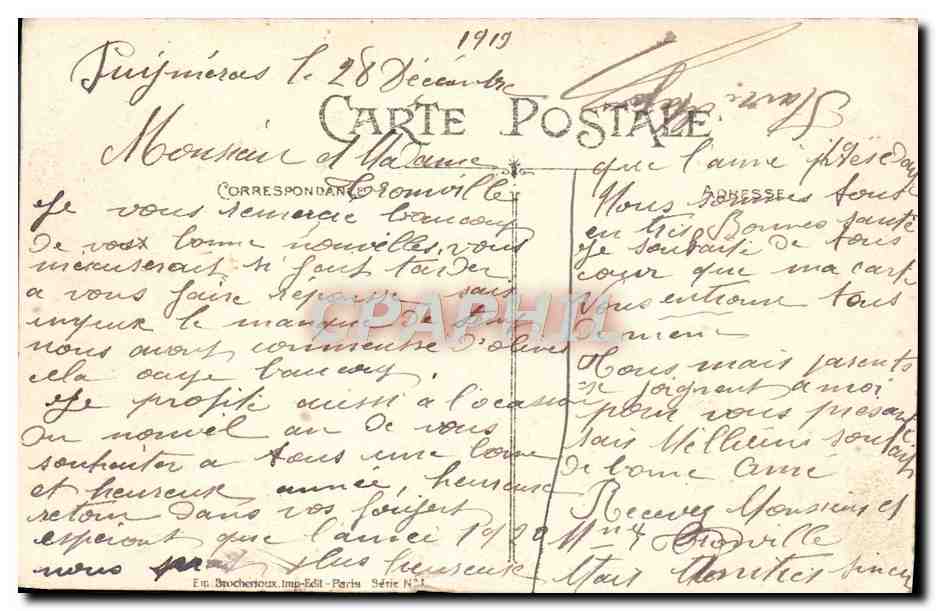 1919
Puignéras le 28 Décembre
CARTE POSTALE
Monsieur et Madame
Tronville
CORRESPONDANCE
Je vous remercie baucoup
de vos bonne nouvelles, vous
mescuserait si faut tarder
a vous faire réponse sais
le manque de
nous avont commensé d'olives
ela baucoup.
Je profite aussi a l'ocasion
du nouvel an de vous
souhaiter a tous une bonne
et heureuse année, heureuse
retour dans vos
esperont que l'anné 1920
nous plus heureuse
que l'anné
ADRESSE
Nous sommes tous
en tres Bonnes santé
Je souhaite de tous
cour que ma carte
Vous entrouve tous
de meme
Tous mais parents
se joignent a moi
pour vous presenté
sais Millieurs souhaits
de bonne anné
Recevez Monsieur et
Mme Tronville
Mais sincer
CPAPHIL
Em. Brocherioux. Imp-Edit - Paris Série N°1